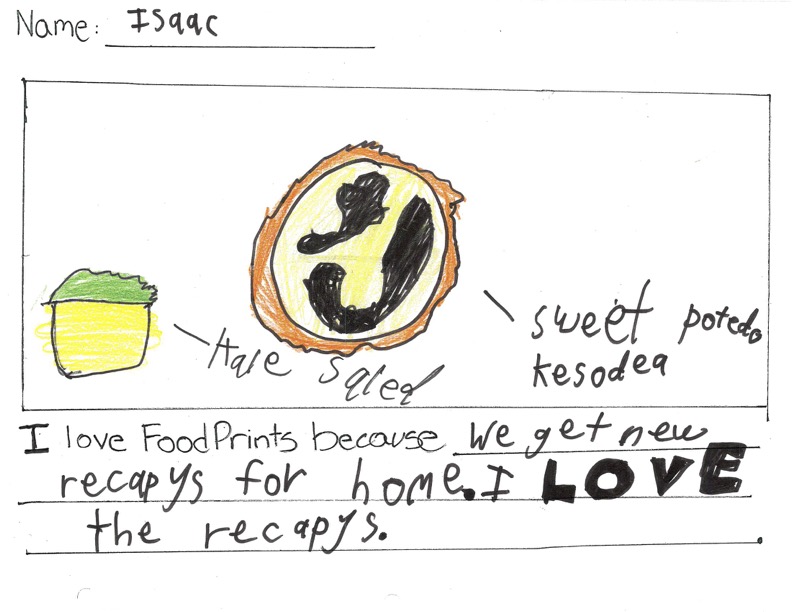 Name: Isaac
sweet potedo
kesodea
Hale saled
I love FoodPrints because we get new
recapys for home. I LOVE
the recapys.